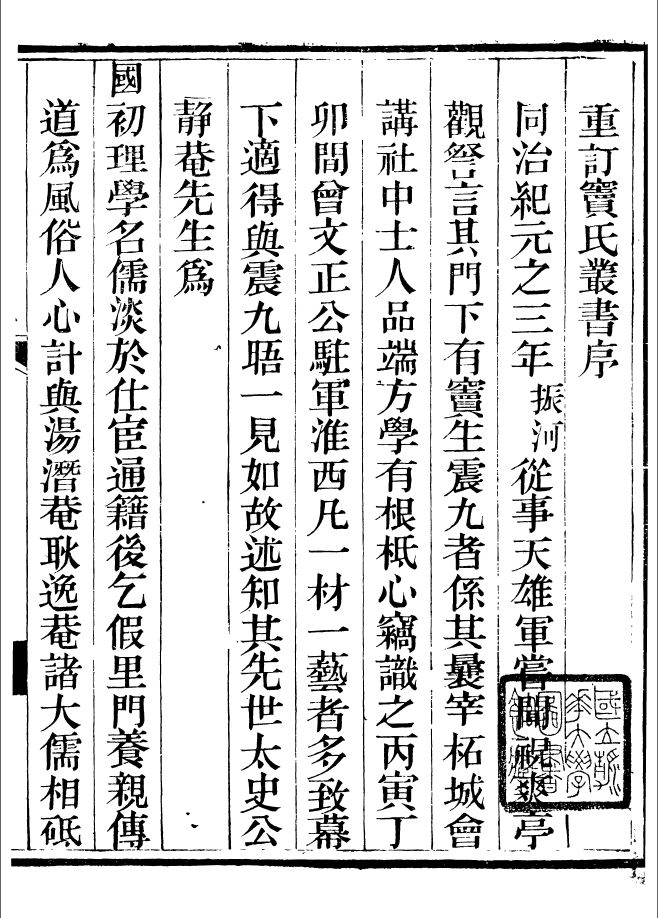 重訂竇氏叢書序
同治紀元之三年振河從事天雄軍嘗聞祝爽亭
觀詧言其門下有竇生震九者係其曩宰柘城會
講社中士人品端方學有根柢心竊識之丙寅丁
卯間曾文正公駐軍淮西凡一材一藝者多致幕
下適得與震九晤一見如故述知其先世太史公
靜菴先生爲
國初理學名儒淡於仕宦通籍後乞假里門養親傳
道爲風俗人心計與湯潛菴耿逸菴諸大儒相砥